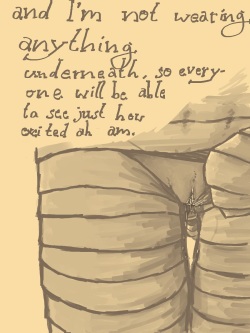 and I'm not wearing
anything
underneath, so every-
one will be able
to see just how
exited ah am.